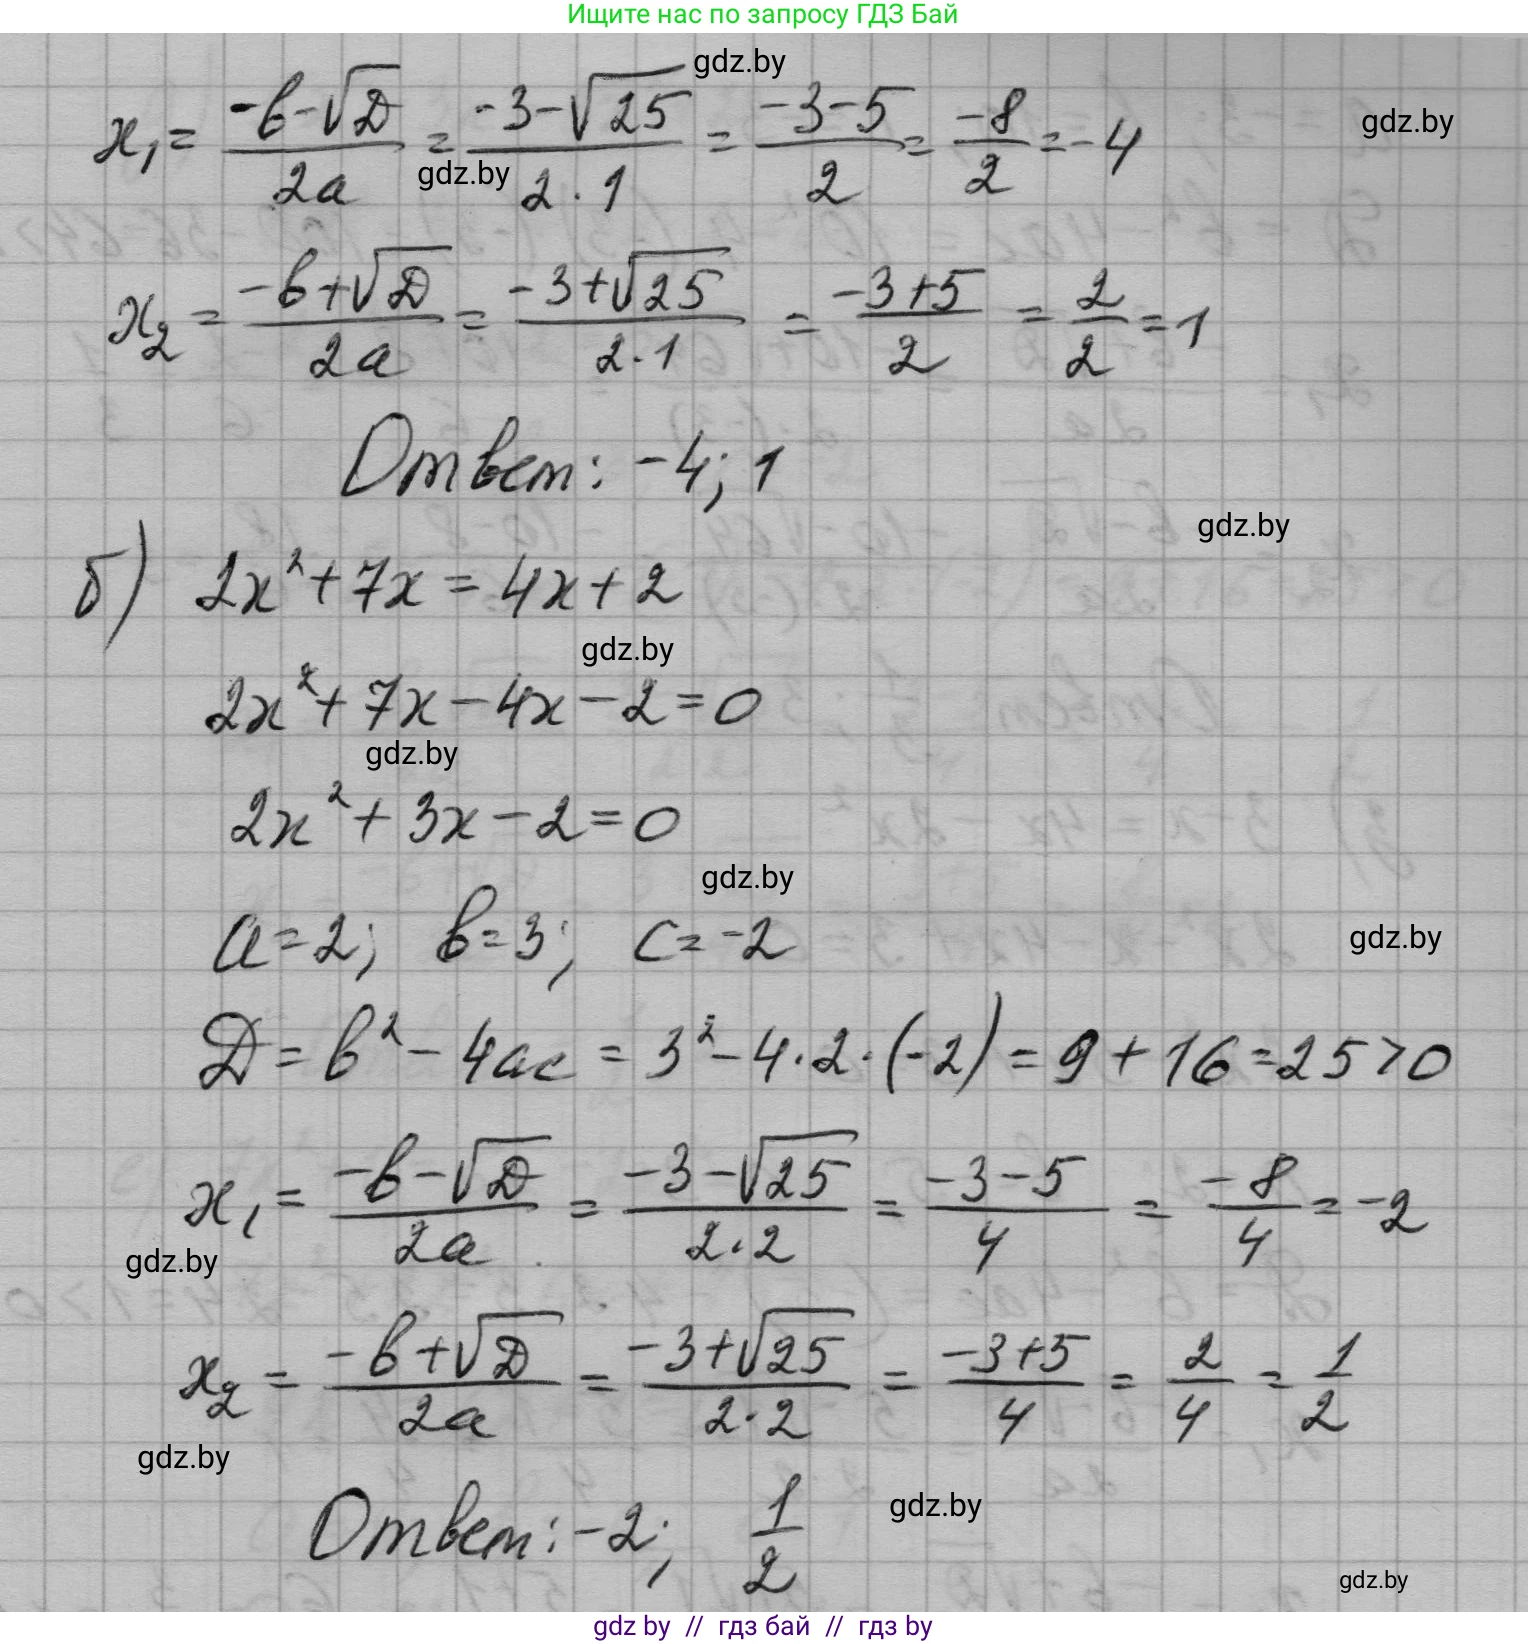 Ищите нас по запросу ГДЗ Бай
gdz.by
x₁ = (-b-√D)/(2a) = (-3-√25)/(2·1) = (-3-5)/2 = -8/2 = -4
gdz.by
gdz.by
x₂ = (-b+√D)/(2a) = (-3+√25)/(2·1) = (-3+5)/2 = 2/2 = 1
Ответ: -4; 1
gdz.by
б) 2x² + 7x = 4x + 2
gdz.by
2x² + 7x - 4x - 2 = 0
gdz.by
2x² + 3x - 2 = 0
gdz.by
a = 2; b = 3; c = -2
gdz.by
D = b² - 4ac = 3² - 4·2·(-2) = 9 + 16 = 25 > 0
x₁ = (-b-√D)/(2a) = (-3-√25)/(2·2) = (-3-5)/4 = -8/4 = -2
gdz.by
x₂ = (-b+√D)/(2a) = (-3+√25)/(2·2) = (-3+5)/4 = 2/4 = 1/2
gdz.by
Ответ: -2; 1/2
gdz.by
gdz.by
gdz by // гдз бай // гдз by